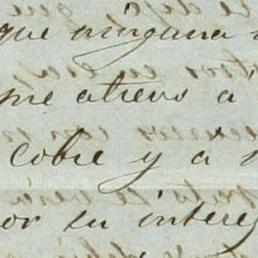 que ninguna
me atrevo a
cobre y a
por su interes